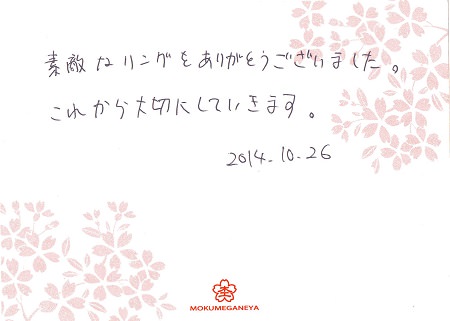 素敵なリングをありがとうございました。
これから大切にしていきます。
2014.10.26
MOKUMEGANEYA